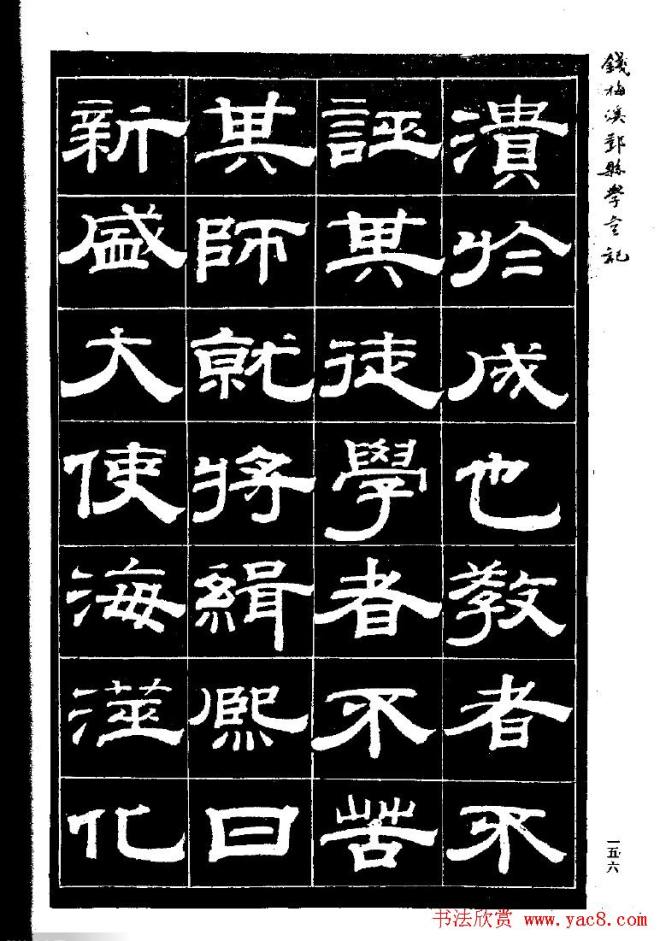 錢梅溪鄞縣學宮記
潰於成也教者不
誣其徒學者不苦
其師就將緝熙日
新盛大使海澨化
一五六
书法欣赏 www.yac8.com